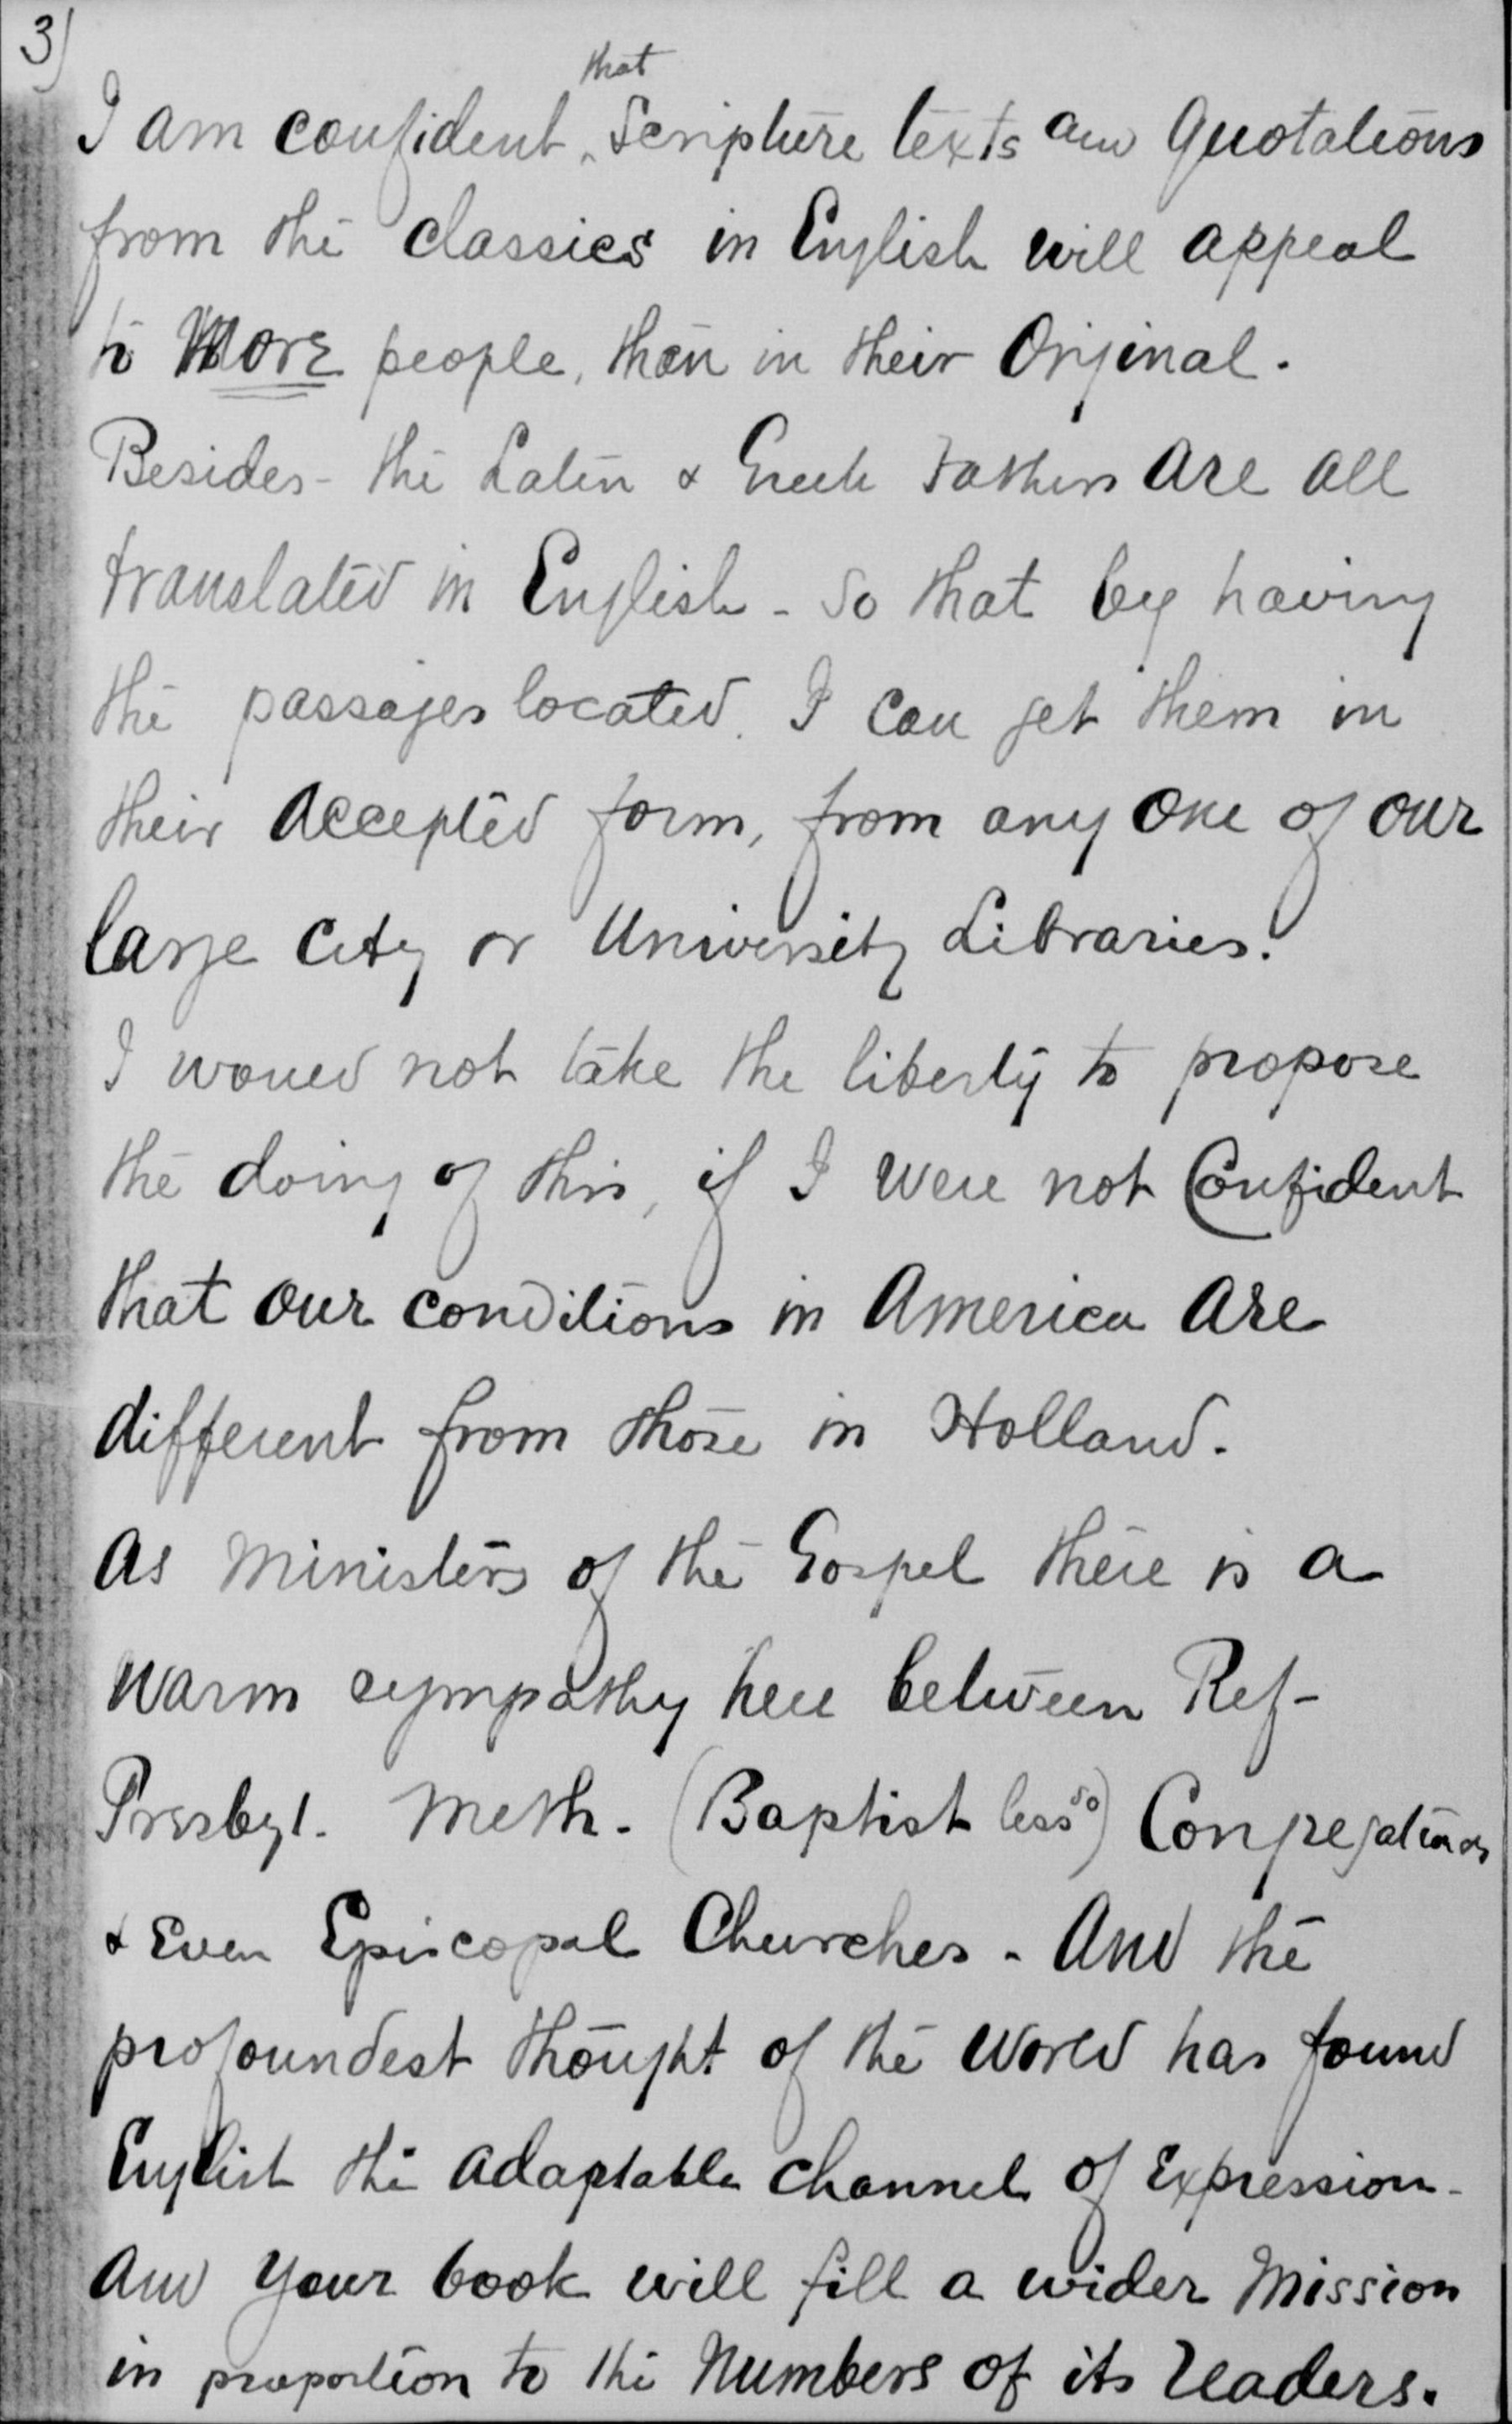 3)
that
I am confident ^ Scripture texts and Quotations
from the classics in English will appeal
to More people, than in their Original.
Besides - the Latin & Greek Fathers are all
translated in English - so that by having
the passages located. I can get them in
their accepted form, from any one of our
large City or University Libraries.
I would not take the liberty to propose
the doing of this, if I were not Confident
that our conditions in America are
different from those in Holland.
As Ministers of the Gospel there is a
warm sympathy here between Ref-
Presbyt. Meth. (Baptist less so) Congregations
& Even Episcopal Churches - And the
profoundest thought of the world has found
English the adaptable channel of Expression -
And your book will fill a wider Mission
in proportion to the Numbers of its readers.